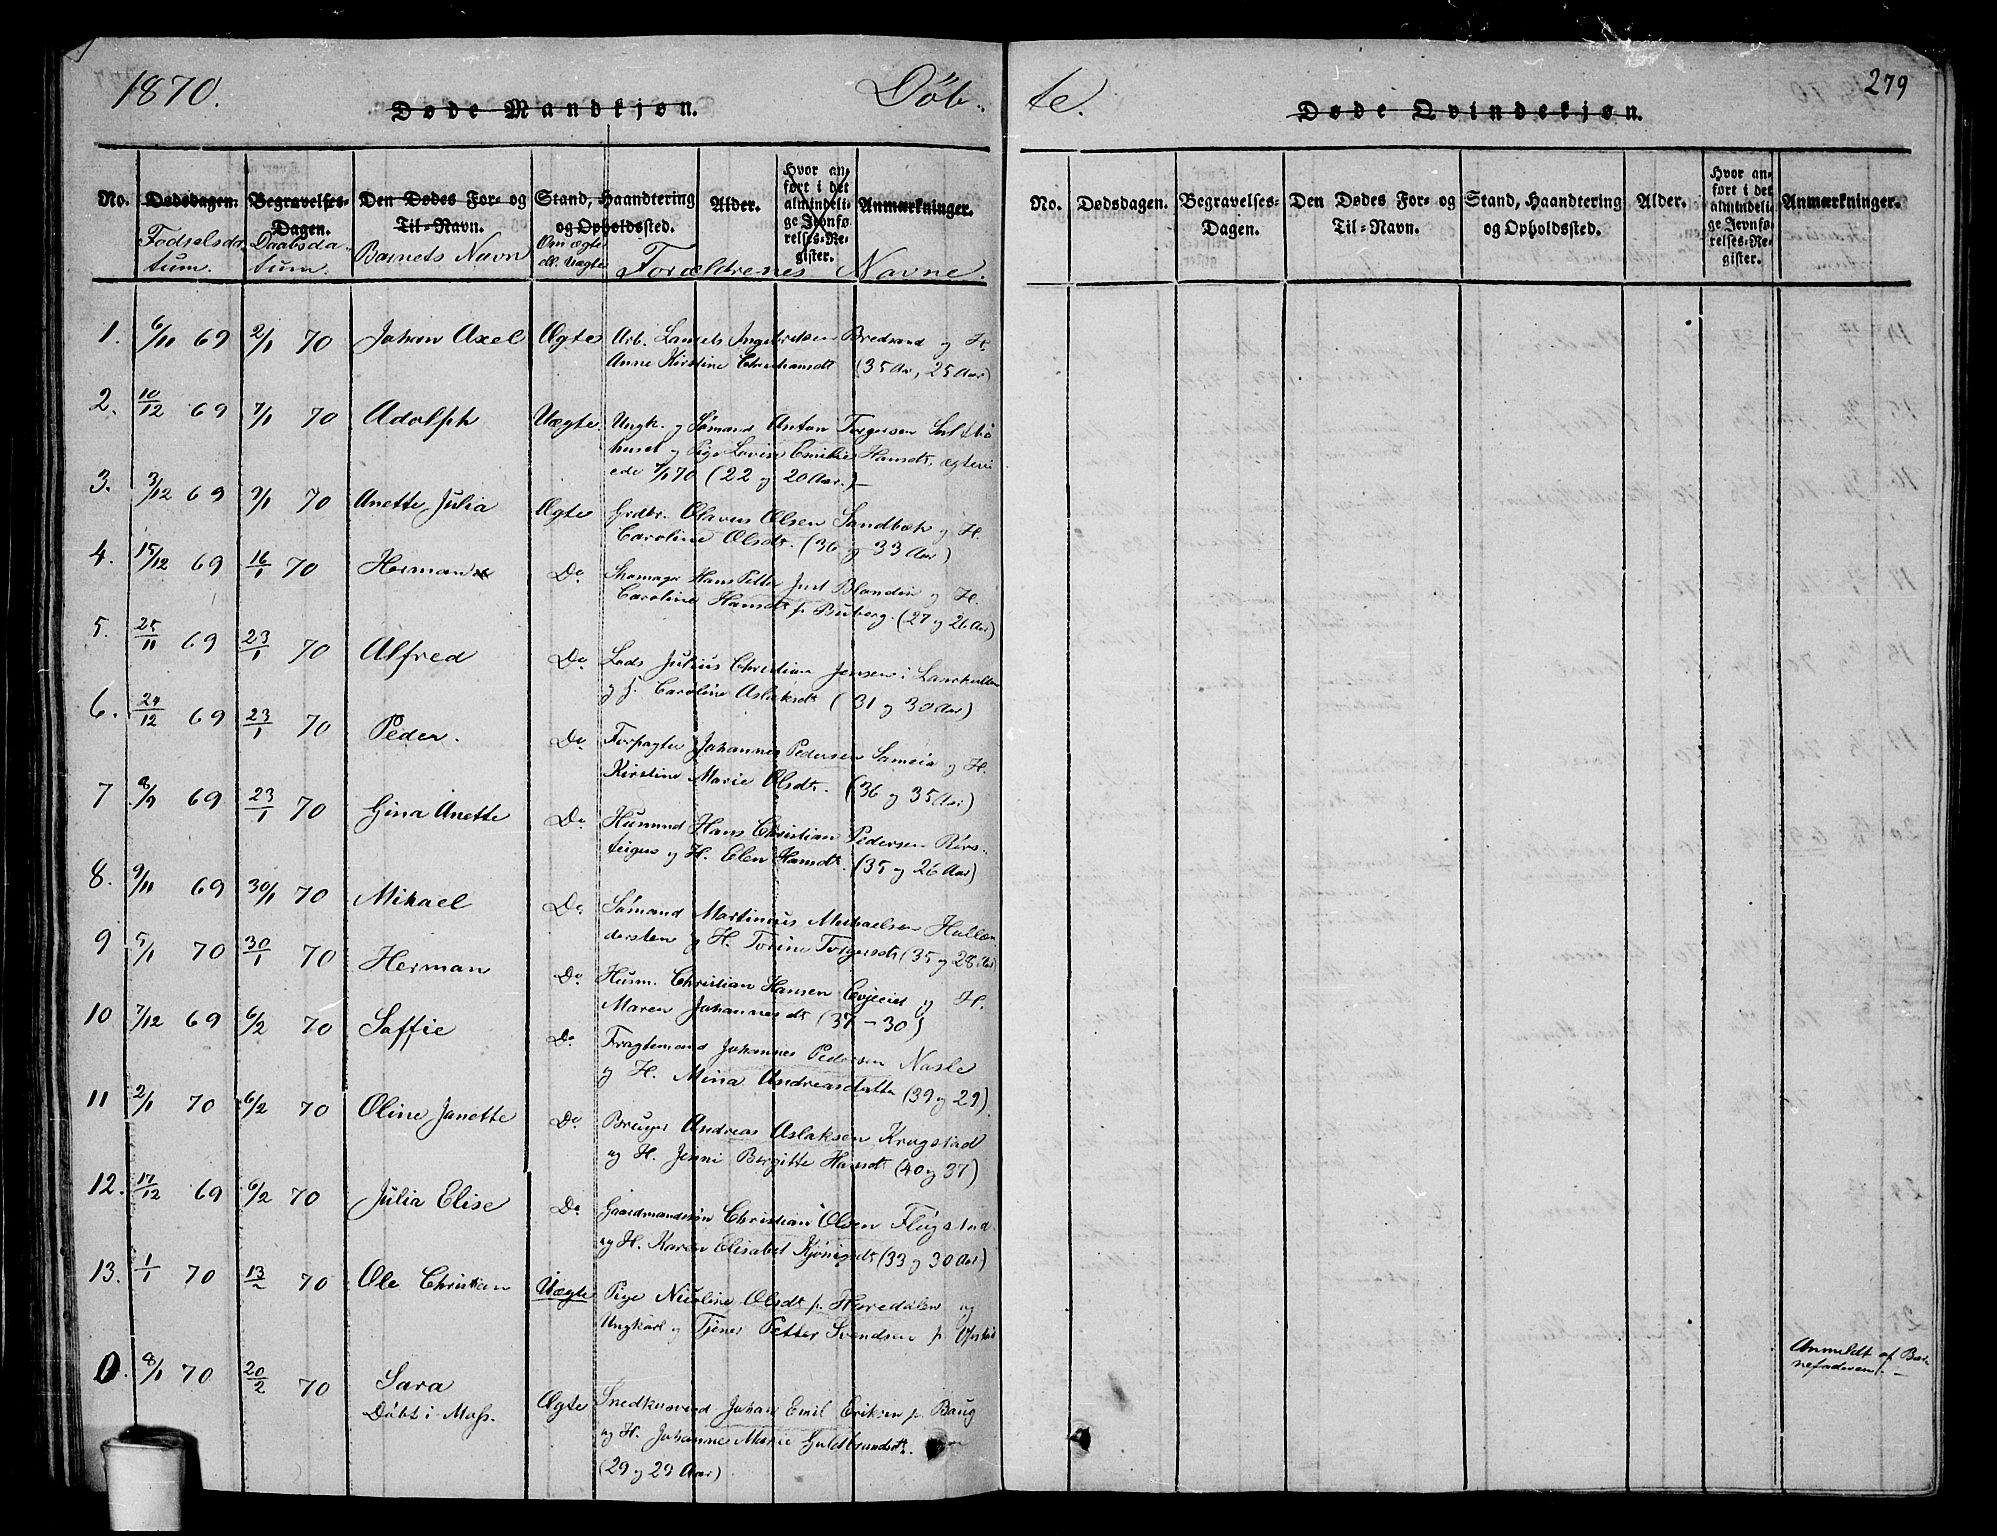 1870.
Døb-
te.
279
Døde Mandkjøn.
Døde Qvindekjøn.
No. Dødsdagen. Begravelses-Dagen. Den Dødes For- og Til-Navn. Stand, Haandtering og Opholdssted. Alder. Hvor anført i det almindelige Jevnførelses-Register. Anmærkninger.
Fødselsdatum. Daabsdatum. Barnets Navn Om ægte ell. Uægte Forældrenes Navne.
No. Dødsdagen. Begravelses-Dagen. Den Dødes For- og Til-Navn. Stand, Haandtering og Opholdssted. Alder. Hvor anført i det almindelige Jevnførelses-Register. Anmærkninger.
1. 6/11 69 2/1 70 Johan Axel Ægte Arb. Ingebretsen Bredsand og H.
Anne Kirstine (35 Aar, 25 Aar)
2. 10/12 69 7/1 70 Adolph Uægte Ungk. og Sømand Anton Torgersen
huset og Pige Lovise Emilie Hansdt. ægtevi
ede 7/1 70 (22 og 20 Aar.)
3. 3/12 69 9/1 70 Anette Julia Ægte Grdbr. Olavus Olsen Sandbæk og H.
Caroline Olsdt. (36 og 33 Aar)
4. 15/12 69 16/1 70 Herman Do. Skomager Hans Petter Just Blandin og H.
Caroline Hansdt. p. Buberg. (27 og 26 Aar)
5. 25/11 69 23/1 70 Alfred Do. Lods Julius Christian Jensen i Larkullen
og H. Caroline Aslaksdt (31 og 30 Aar)
6. 24/12 69 23/1 70 Peder. Do. Forpagter Johannes Pedersen Sameia og H.
Kirstine Marie Olsdt. (36 og 35 Aar)
7 8/9 69 23/1 70 Gina Anette Do. Husmd Hans Christian Pedersen Rørs-
teigen og H. Elen Hansdt. (35 og 26 Aar)
8. 9/11 69 30/1 70 Mikael Do. Sømand Martinius Michaelsen Hullæn
dersten og H. Torine Torgersdt (35 og 28 Aar)
9 5/1 70 30/1 70 Herman Do. Husm. Christian Hansen Evjeeiet og H.
Maren Johannesdt (37 - 30)
10 7/12 69 6/2 70 Soffie Do. Fragtemand Johannes Pedersen Nasle
og H. Mina Andreasdatter (39 og 29).
11 2/1 70 6/2 70 Oline Janette Do. Bruger Andreas Aslaksen Krogstad
og H. Jenni Birgitte Hansdt (40 og 37)
12. 17/12 69 6/2 70 Julia Elise Do. Gaardmandssøn Christian Olsen Flugstad
og H. Karen Elisabet (33 og 30 Aar)
13. 1/1 70 13/2 70 Ole Christian Uægte Pige Nicoline Olsdt p. Horedalen og
Ungkarl og Tjener Petter Svendsen p.
Anmeldt af Bar-
nefaderen!.-
0. 8/1 70 20/2 70 Sara Ægte Snedkersvend Johan Emil Eriksen p. Baug
Døbt i Moss. og H. Johanne Marie Guldbrandsdt.
(29 og 29 Aar)